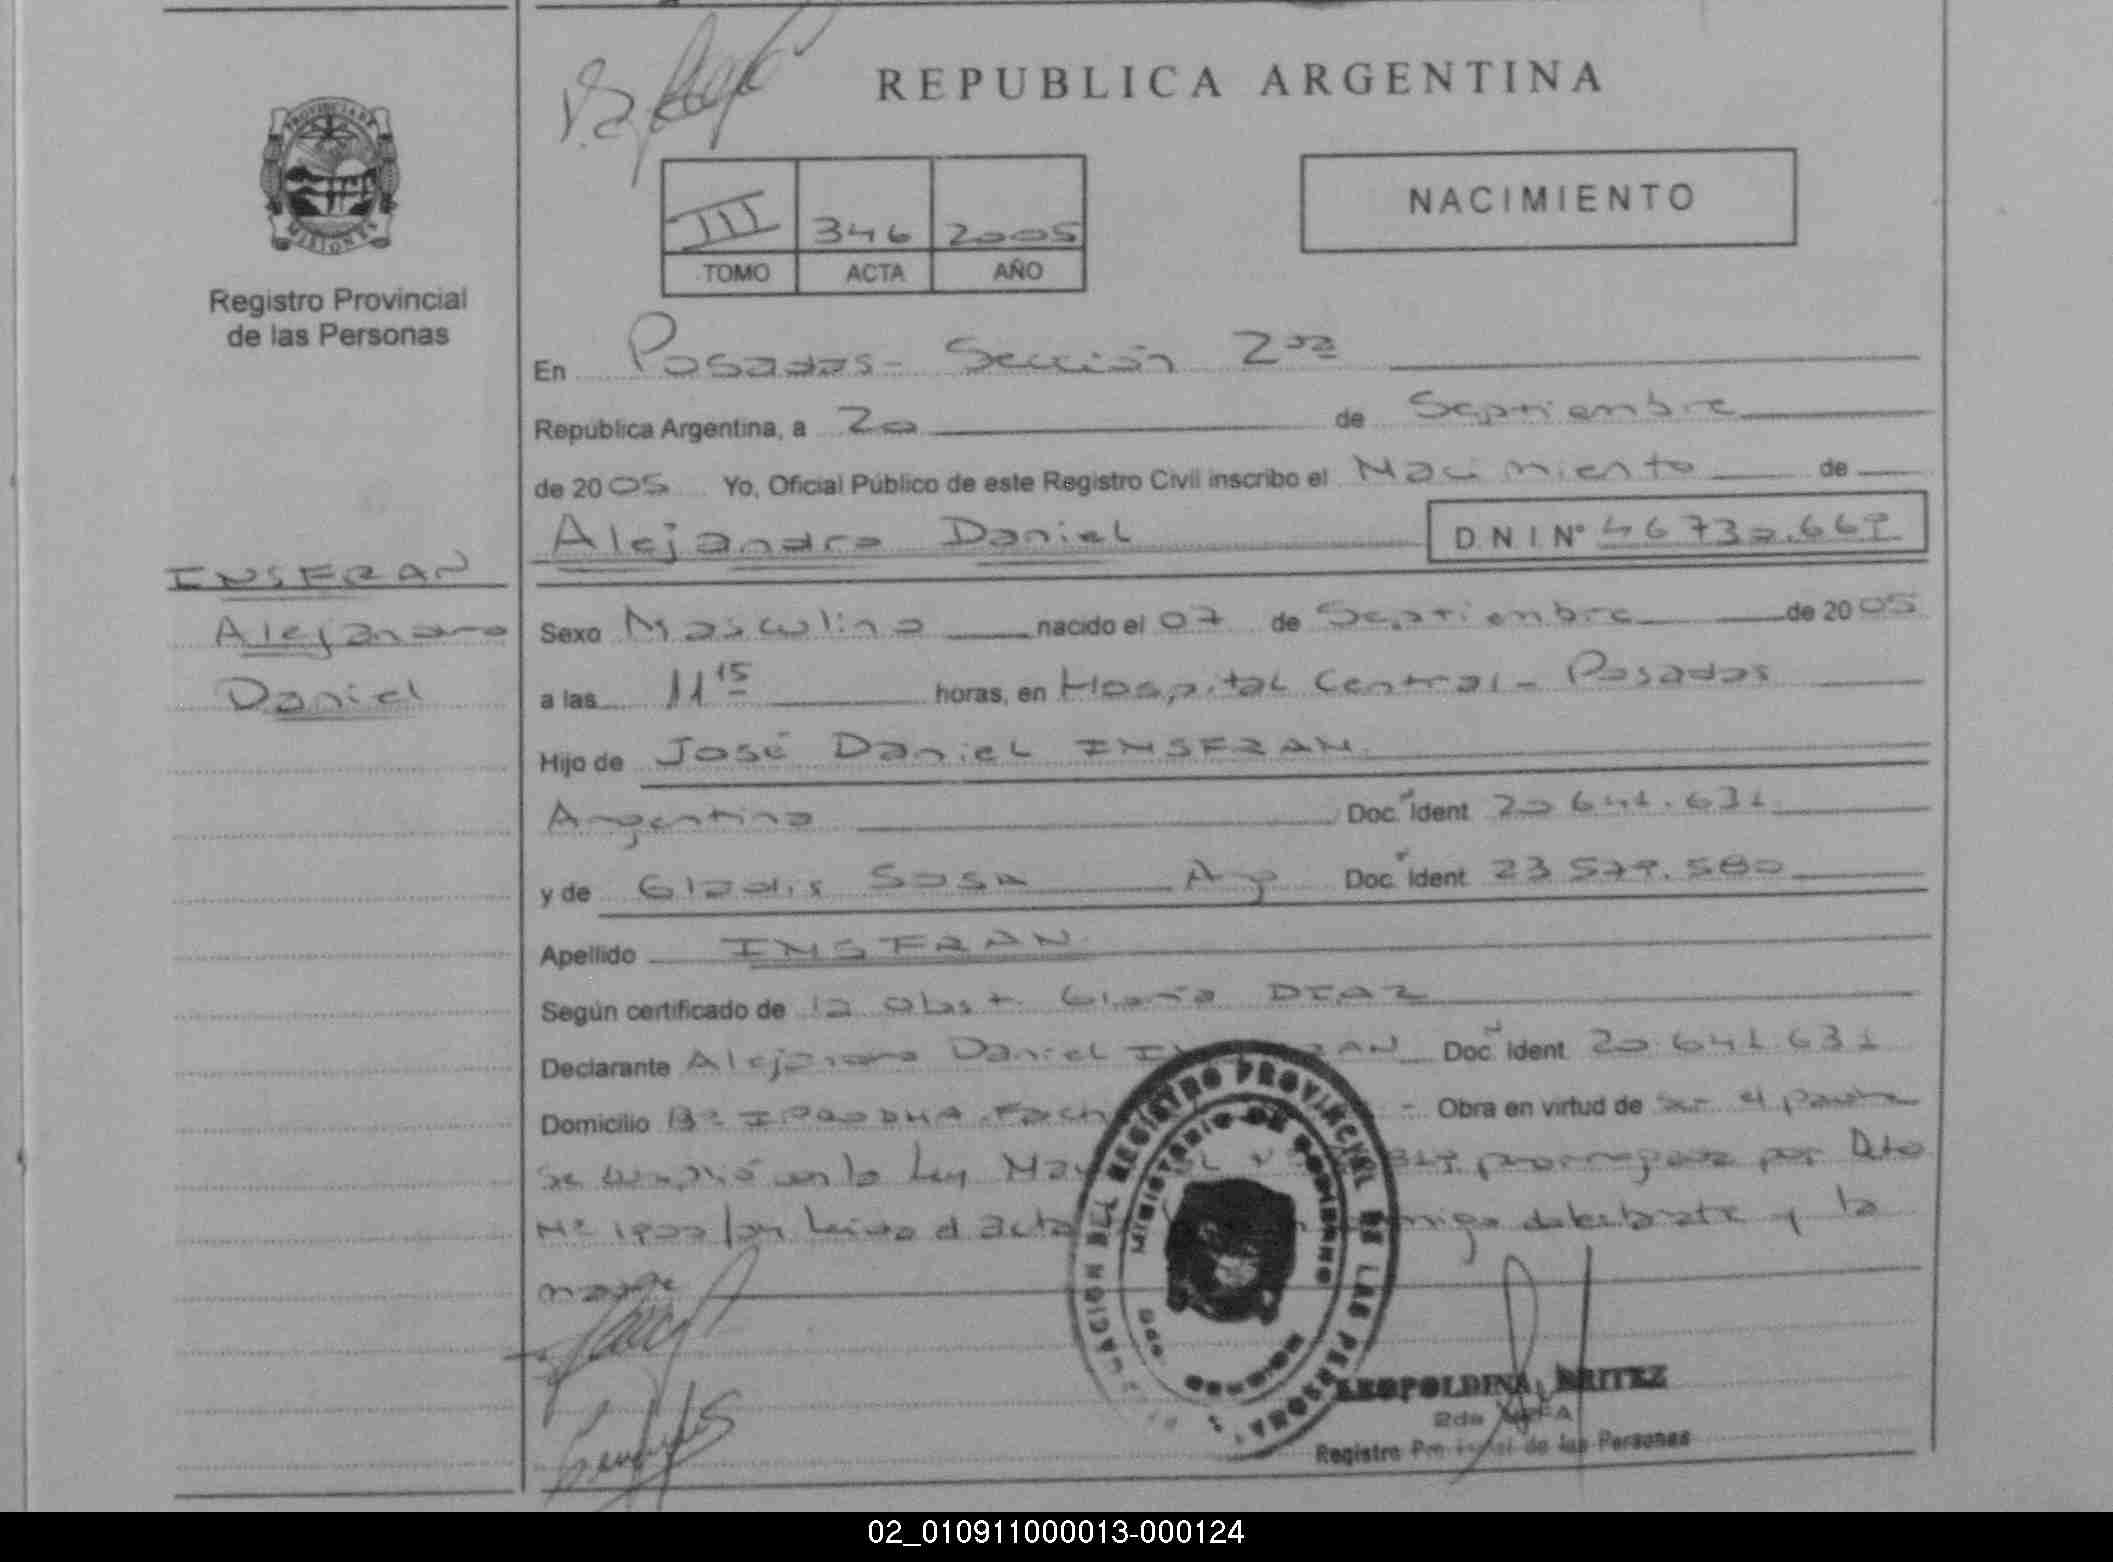 REPUBLICA ARGENTINA
PROVINCIA DE
MISIONES
Registro Provincial
de las Personas
III 346 2005
TOMO ACTA AÑO
NACIMIENTO
En Posadas - Sección 2da
República Argentina, a 20 de Septiembre
de 2005 Yo, Oficial Público de este Registro Civil inscribo el Nacimiento de
Alejandro Daniel D.N.I Nº 46 732.669
INSFRAN
Alejandro
Daniel
Sexo Masculino nacido el 07 de Septiembre de 2005
a las 11 15 horas, en Hospital Central - Posadas
Hijo de José Daniel INSFRAN
Argentino Doc. Ident 20 641.631
y de Gladis SOSA Arg Doc. Ident 23 579.580
Apellido INSFRAN
Según certificado de la Obst. Gloria DIAZ
Declarante Alejandro Daniel Doc. Ident 20 641 631
Domicilio Bº - Obra en virtud de ser el padre
se cumplió con la Ley por Dto
Nº 1900/04 Leida el acta y la
madre
REGISTRO PROVINCIAL DE LAS PERSONAS
MINISTERIO DE GOBIERNO
LEOPOLDINA BRITEZ
2da
Registro Provincial de las Personas
02_010911000013-000124